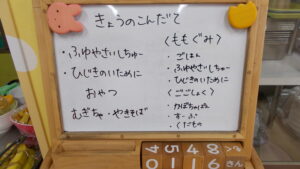 きょうのこんだて
・ふゆやさいしちゅー
・ひじきのいために
おやつ
むぎちゃ・やきそば
〈ももぐみ〉
・ごはん
・ふゆやさいしちゅー
・ひじきのいために
〈ごごしょく〉
・かぼちゃぱん
・すーぷ
・くだもの